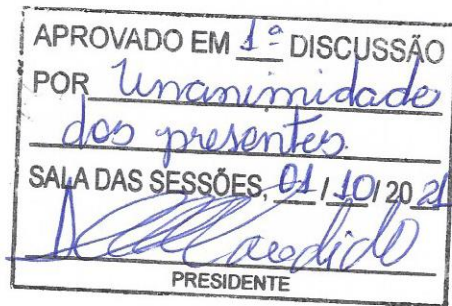 APROVADO EM 1ª DISCUSSÃO
POR Unanimidade
dos presentes.
SALA DAS SESSÕES, 01 / 10 / 20 21
PRESIDENTE